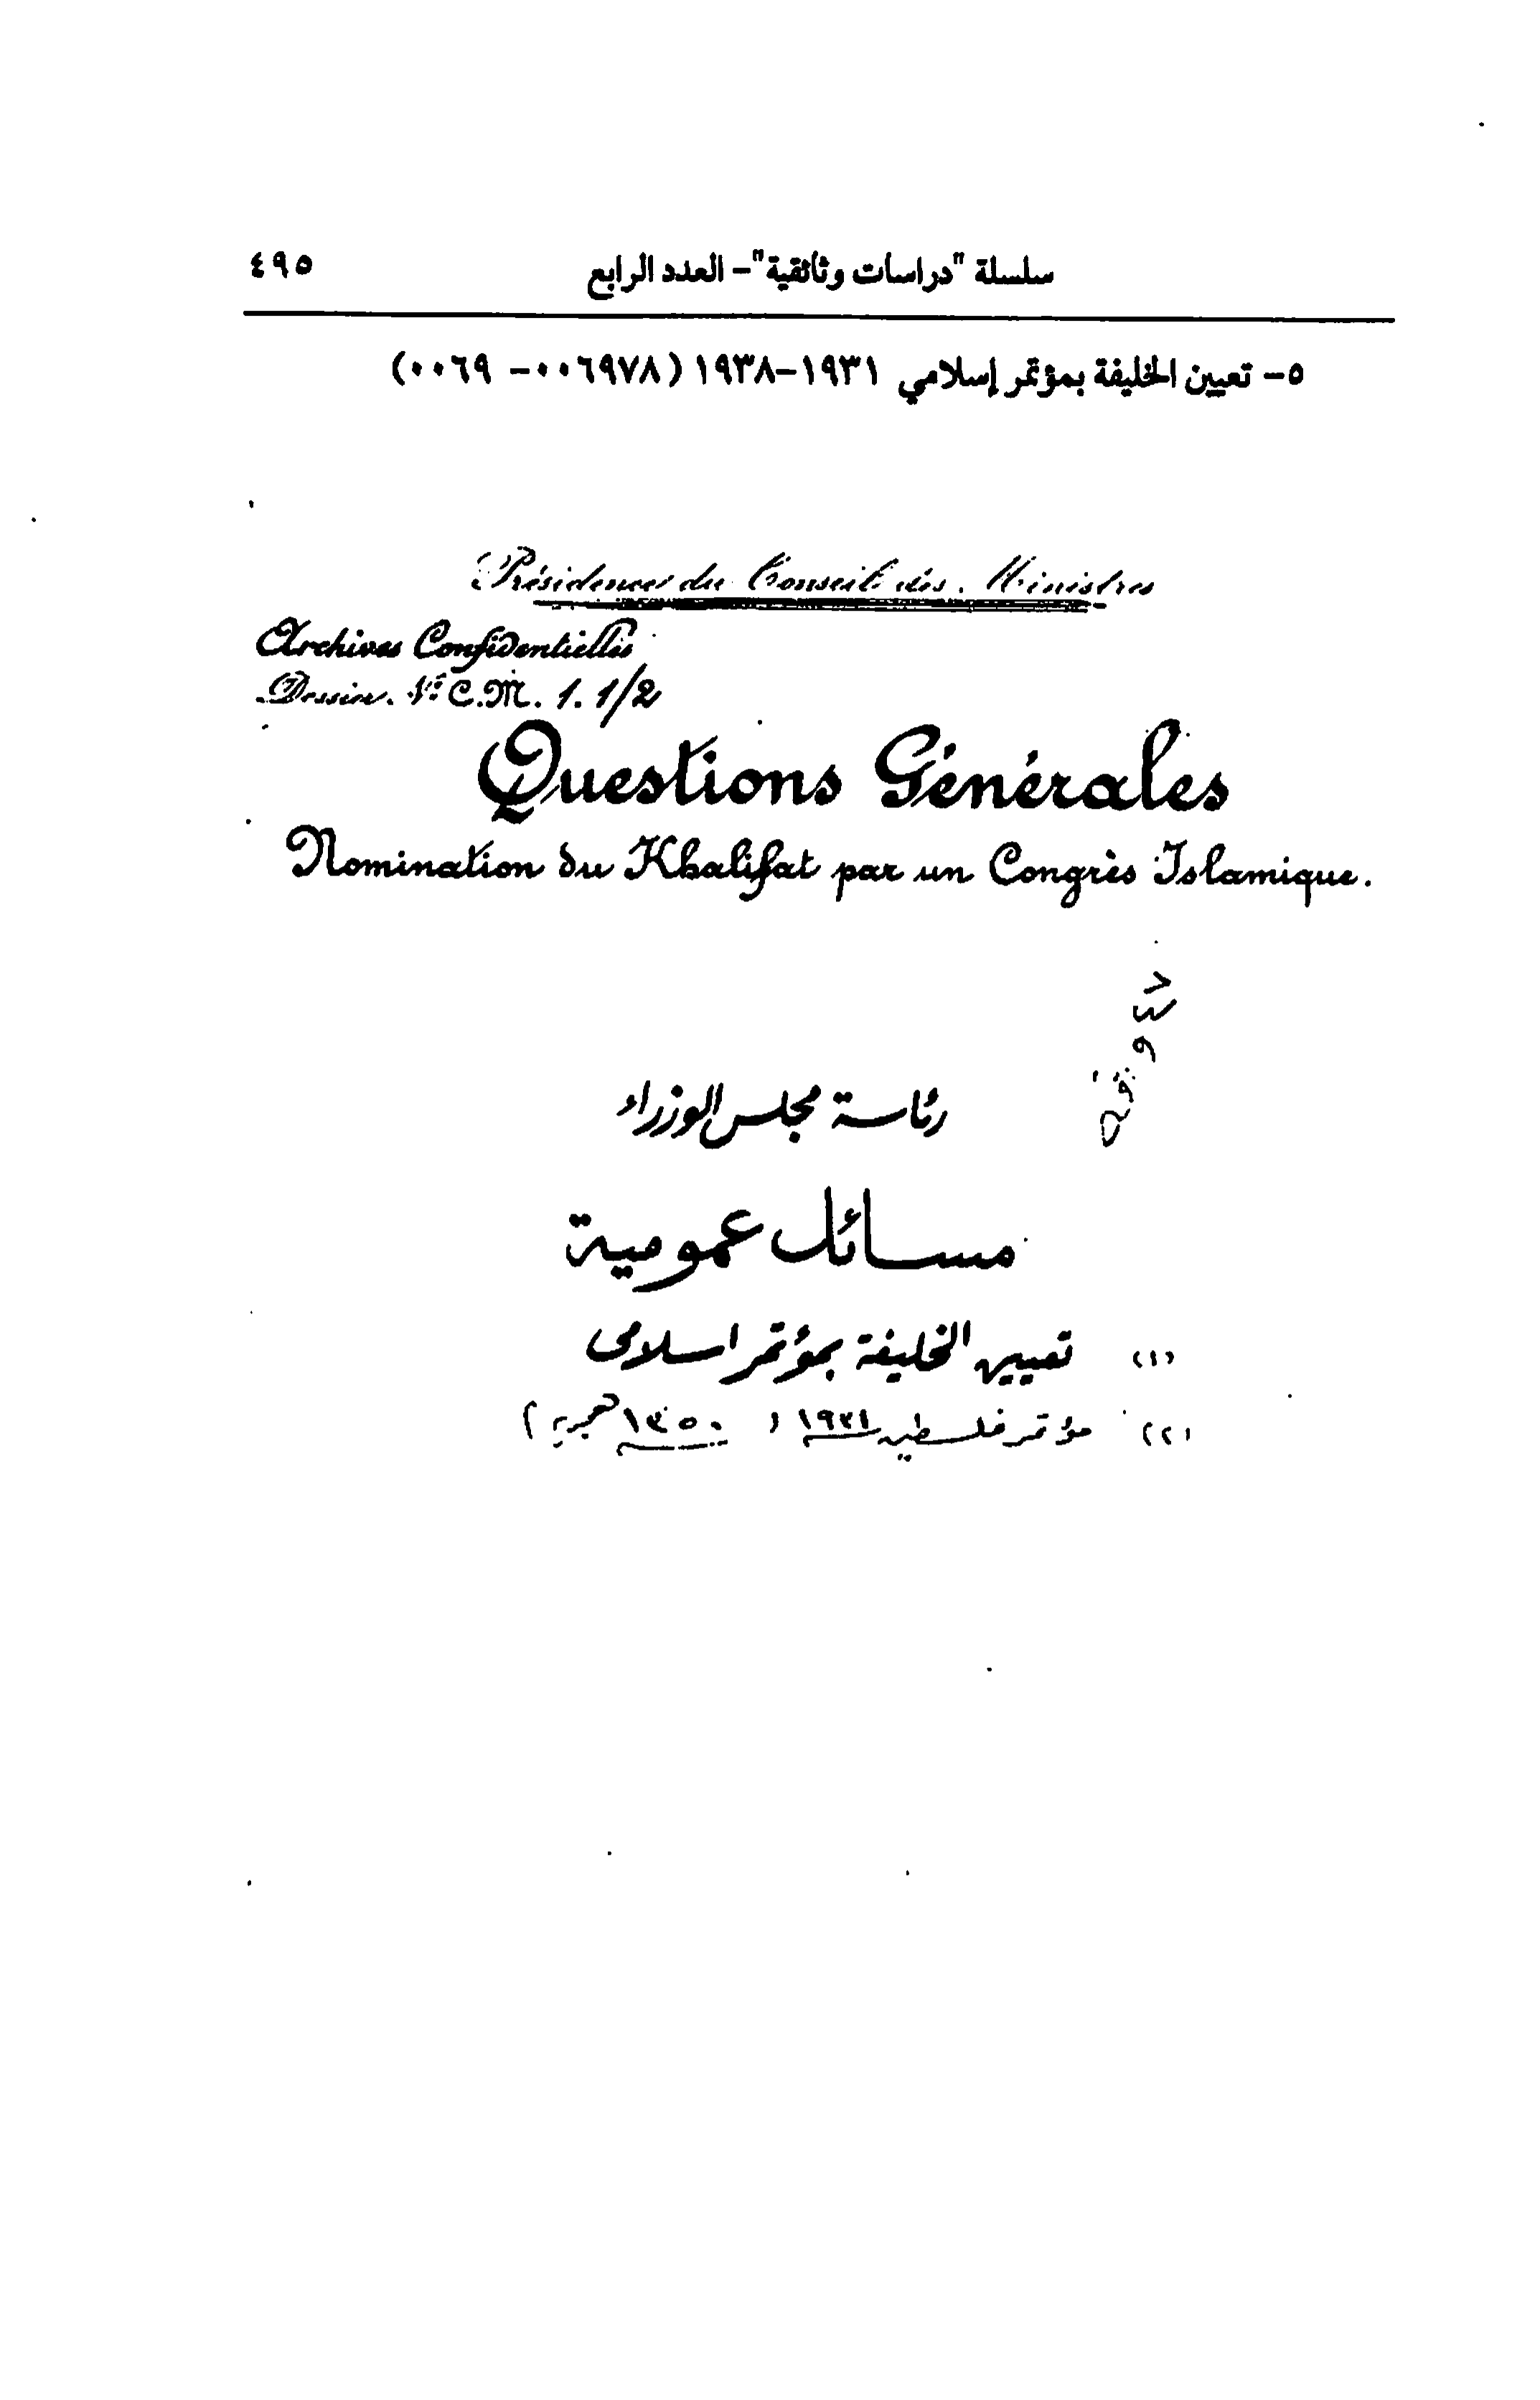 سلسلة "دراسات وثائقية"- العدد الرابع ٤٩٥
٥- تعيين الخليفة بمؤتمر إسلامي ١٩٣١-١٩٣٨ (٠٠٦٩٧٨- ٠٠٦٩)
Présidence du Conseil des Ministres
Archives Confidentielles
Dossier Nº C.M. 1. 1/2
Questions Générales
Nomination du Khalifat par un Congrès Islamique.
رئاسة مجلس الوزراء
مسائل عمومية
(١) تعيين الخليفة بمؤتمر اسلامى
(٢) مؤتمر فلسطين ١٩٣١ (١٣٥٠ هجرية)